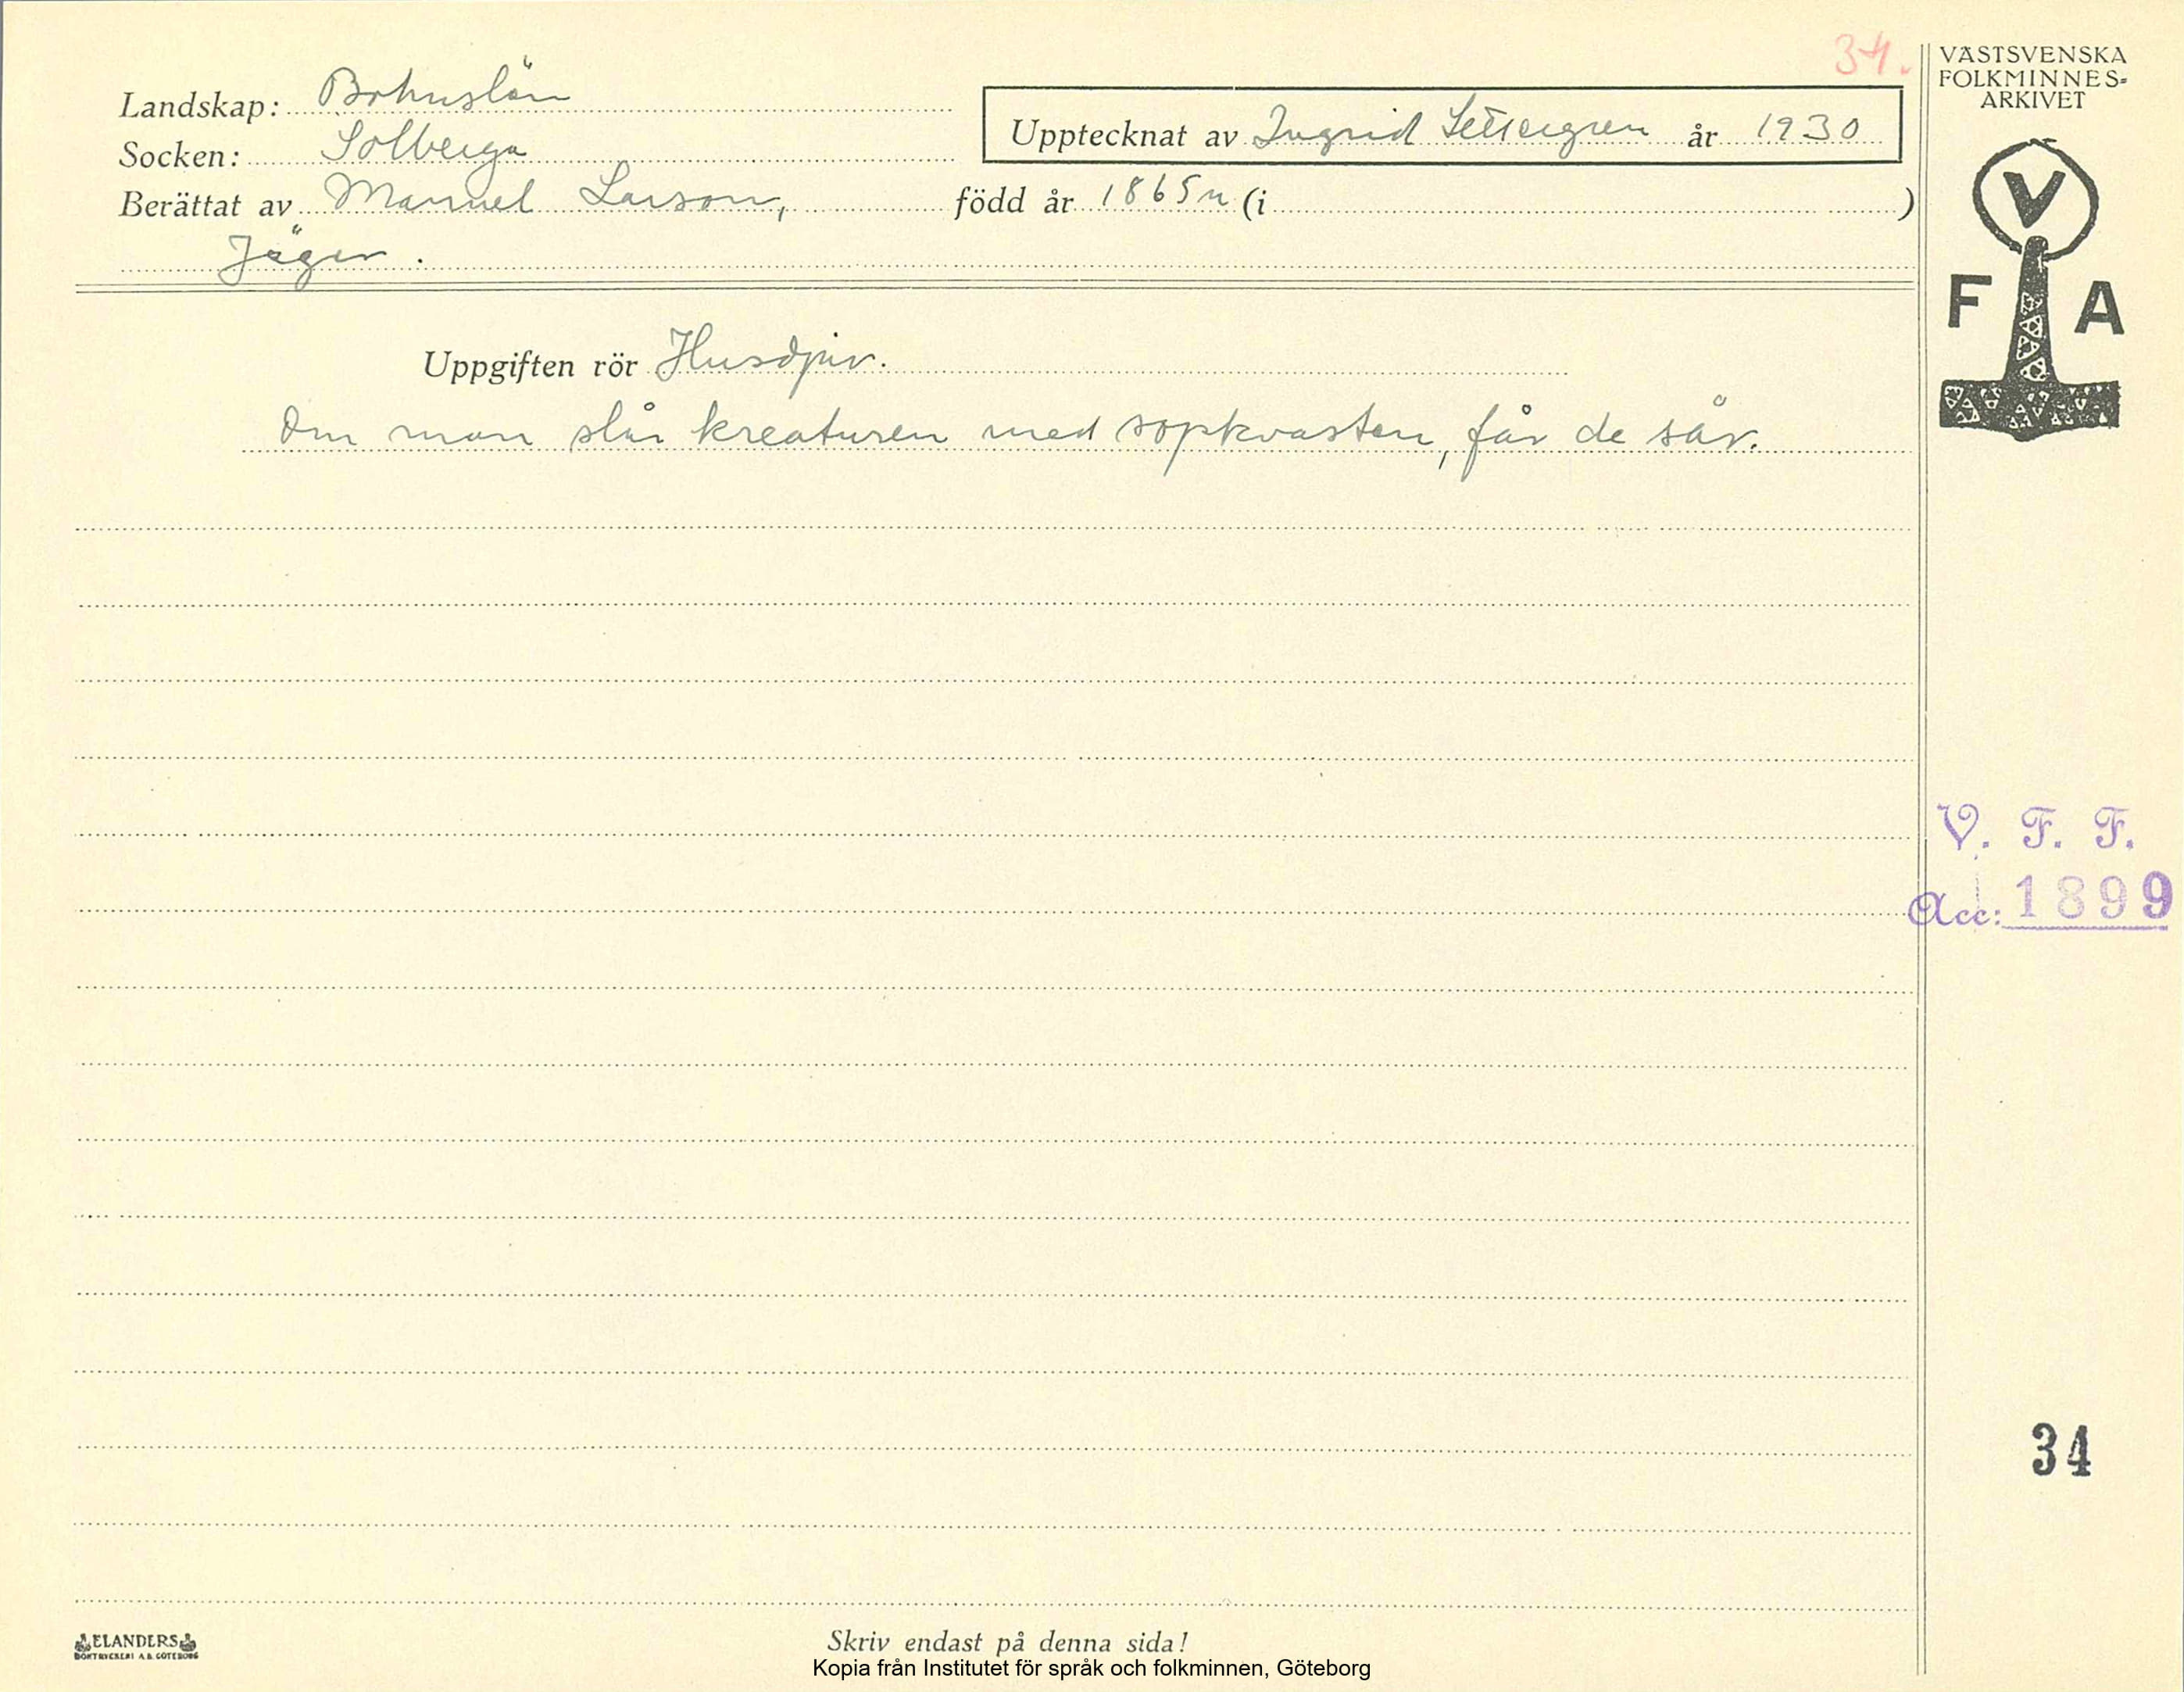 34.
VÄSTSVENSKA
FOLKMINNES-
ARKIVET
Landskap: Bohuslän
Upptecknat av Ingrid Settergren år 1930
Socken: Solberga
Berättat av Manuel Larson, född år 1865 (i )
Jäger.
V
F A
Uppgiften rör Husdjur.
Om man slår kreaturen med sopkvasten, får de sår.
V. F. F.
Acc: 1899
34
ELANDERS
BOKTRYCKERI A.B. GÖTEBORG
Skriv endast på denna sida!
Kopia från Institutet för språk och folkminnen, Göteborg